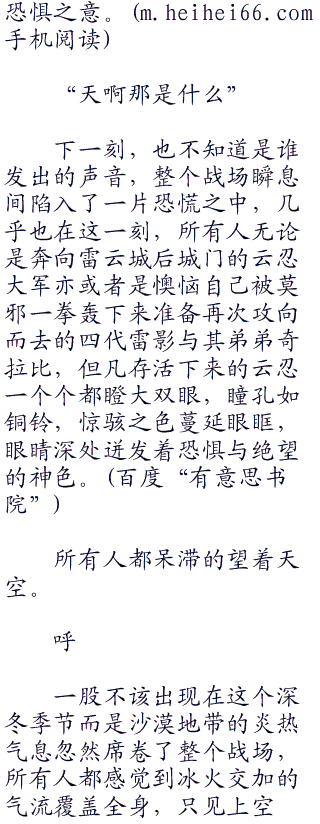 恐惧之意。(m.heihei66.com
手机阅读)
“天啊那是什么”
下一刻，也不知道是谁
发出的声音，整个战场瞬息
间陷入了一片恐慌之中，几
乎也在这一刻，所有人无论
是奔向雷云城后城门的云忍
大军亦或者是懊恼自己被莫
邪一拳轰下来准备再次攻向
而去的四代雷影与其弟弟奇
拉比，但凡存活下来的云忍
一个个都瞪大双眼，瞳孔如
铜铃，惊骇之色蔓延眼眶，
眼睛深处迸发着恐惧与绝望
的神色。(百度“有意思书
院”)
所有人都呆滞的望着天
空。
呼
一股不该出现在这个深
冬季节而是沙漠地带的炎热
气息忽然席卷了整个战场，
所有人都感觉到冰火交加的
气流覆盖全身，只见上空